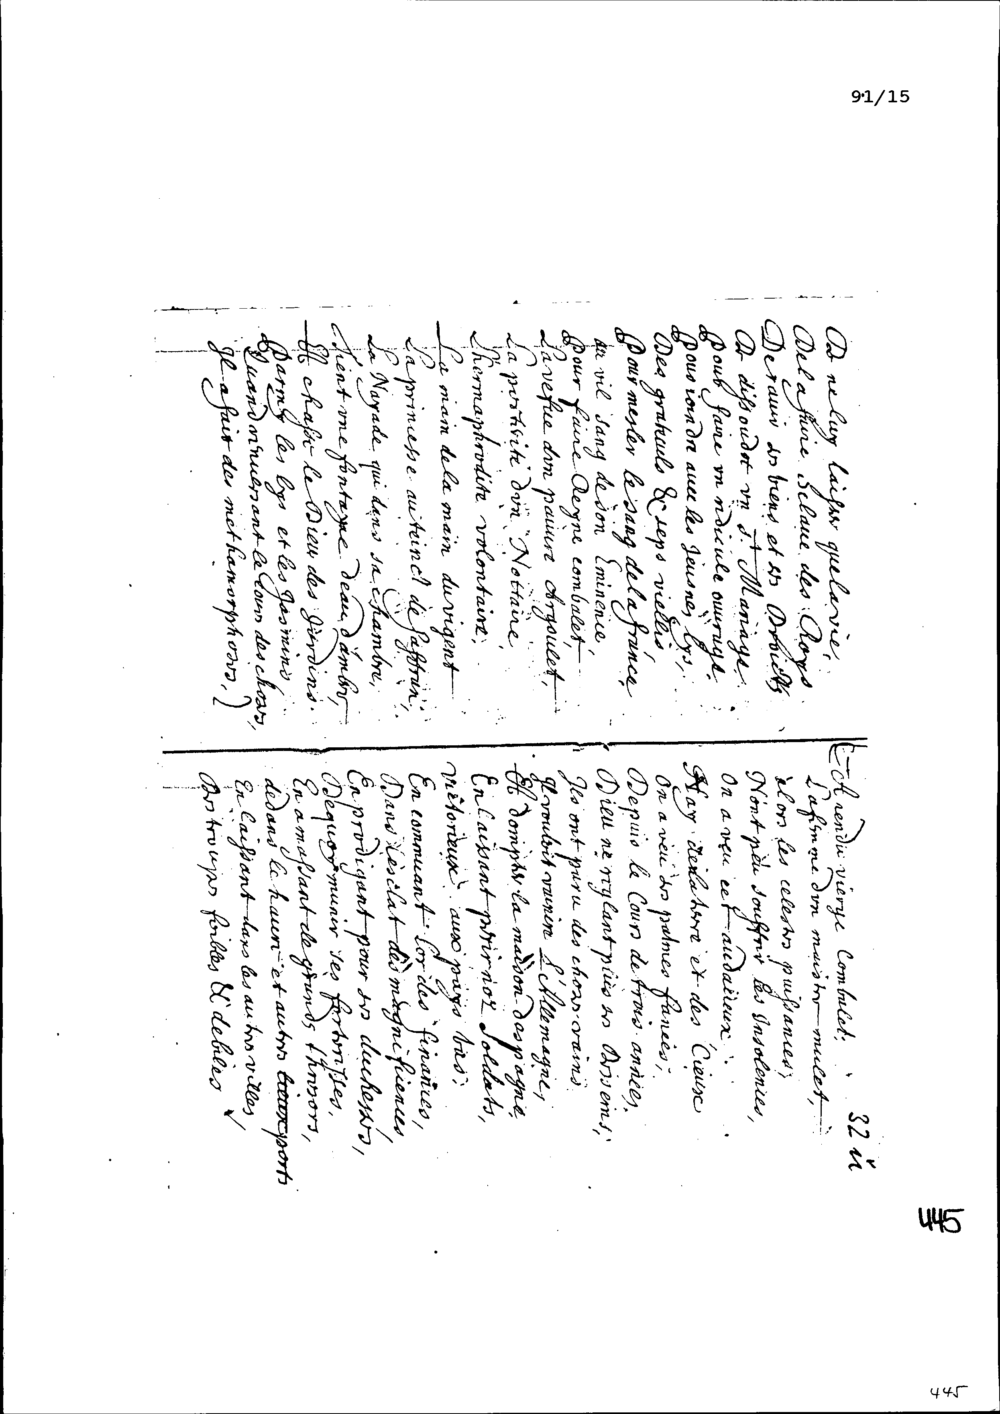 91/15
De ne luy laisser que la vie,
De la faire Esclaue des Roys
De rauir ses biens et ses Droicts
De dissoudre un st Mariage
Pour faire un ridicule ouurage.
Pour joindre auec les jeunes lys,
Des gratteculs & ceps vieillis
Pour mesler le sang de la france
au vil sang de son Eminence,
Pour faire Regne combalet
La vefue d'un pauure Argoulet,
La petitite d'un Nottaire,
L'hermaphrodite volontaire,
La main de la main du regent
La princesse au teinct de saffran,
La Nayade qui dans sa chambre,
Tient une fontayne d'eau d'ambre,
Et chasse le Dieu des Jardins.
Parmy les lys et les Jasmins
Quand renuersant le Cours des choses,
Il a fait des methamorphoses,
32 u
Et rendu vierge Combalet,
La femme d'un maistre mulet,
alors les celestes puissances,
N'ont peu souffrir les Insolences,
On a veu cet audatieux
Hay de la terre et des Cieux
On a veu ses palmes flanies,
Depuis le Cours de trois années,
Dieu ne reglant plus ses Desseins,
Ils ont paru des choses vaines
Il vouloit ruiner L'Allemagne,
Et dompter la maison d'espagne,
En laissant perir noz soldats,
Victorieux aux pays bas,
En commuant l'or des finances,
Dans l'esclat des magnificences
En prodigant pour ses duchesses,
De quoy munir ses forteresses,
En amassant de grands thresors,
dedans le haure et autres ports
En laissant dans les autres villes,
Des troupes foibles & debiles
445
445